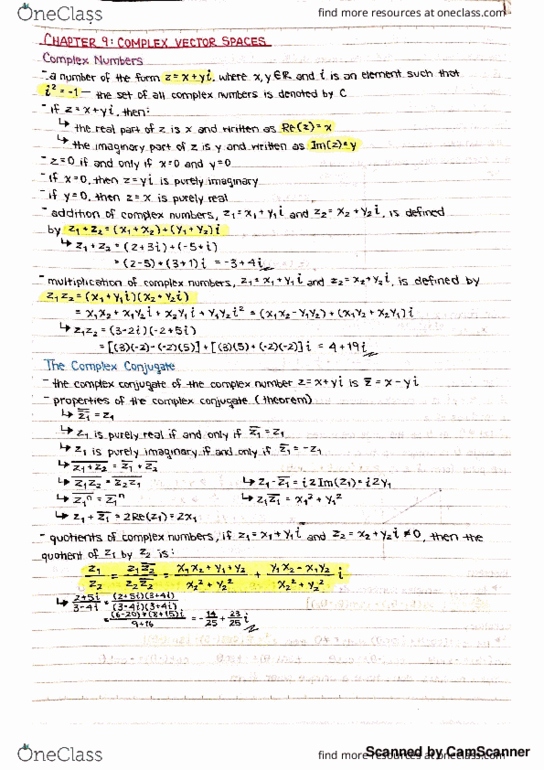 OneClass
find more resources at oneclass.com
CHAPTER 9: COMPLEX VECTOR SPACES
Complex Numbers
- a number of the form z = x + yi, where x, y ∈ ℝ and i is an element such that
i² = -1 – the set of all complex numbers is denoted by C
- if z = x + yi, then:
↳ the real part of z is x and written as Re(z) = x
↳ the imaginary part of z is y and written as Im(z) = y
- z = 0 if and only if x = 0 and y = 0
- if x = 0, then z = yi is purely imaginary
- if y = 0, then z = x is purely real
- addition of complex numbers, z₁ = x₁ + y₁i and z₂ = x₂ + y₂i, is defined
by z₁ + z₂ = (x₁ + x₂) + (y₁ + y₂)i
↳ z₁ + z₂ = (2 + 3i) + (-5 + i)
= (2-5) + (3+1)i = -3 + 4i
- multiplication of complex numbers, z₁ = x₁ + y₁i and z₂ = x₂ + y₂i, is defined by
z₁z₂ = (x₁ + y₁i)(x₂ + y₂i)
= x₁x₂ + x₁y₂i + x₂y₁i + y₁y₂i² = (x₁x₂ - y₁y₂) + (x₁y₂ + x₂y₁)i
↳ z₁z₂ = (3-2i)(-2+5i)
= [(3)(-2) - (-2)(5)] + [(3)(5) + (-2)(-2)]i = 4 + 19i
The Complex Conjugate
- the complex conjugate of the complex number z = x + yi is z̅ = x - yi
- properties of the complex conjugate (theorem)
↳ z̿₁ = z₁
↳ z₁ is purely real if and only if z̅₁ = z₁
↳ z₁ is purely imaginary if and only if z̅₁ = -z₁
↳ \overline{z₁ + z₂} = z̅₁ + z̅₂
↳ \overline{z₁z₂} = z̅₁z̅₂ ↳ z₁ - z̅₁ = i2Im(z₁) = i2y₁
↳ \overline{z₁ⁿ} = z̅₁ⁿ ↳ z₁z̅₁ = x₁² + y₁²
↳ z₁ + z̅₁ = 2Re(z₁) = 2x₁
- quotients of complex numbers, if z₁ = x₁ + y₁i and z₂ = x₂ + y₂i ≠ 0, then the
quotient of z₁ by z₂ is:
z₁/z₂ = z₁z̅₂/z₂z̅₂ = (x₁x₂ + y₁ + y₂)/(x₂² + y₂²) + (y₁x₂ - x₁y₂)/(x₂² + y₂²) i
↳ (2+5i)/(3-4i) = (2+5i)(3+4i)/(3-4i)(3+4i)
= ((6-20) + (8+15)i)/(9+16) = -14/25 + 23/25 i
OneClass
find more resources at oneclass.com
Scanned by CamScanner